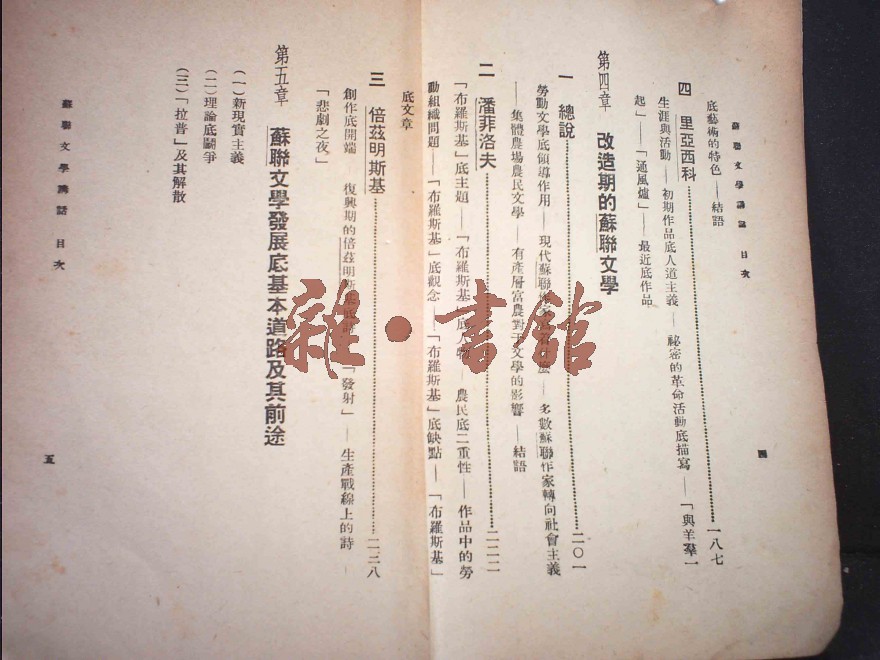 蘇聯文學講話 目次
四
底藝術的特色——結語
四 里亞西科……一八七
生涯與活動——初期作品底人道主義——祕密的革命活動底描寫——「與羊羣一
起」——「通風爐」——最近底作品
第四章 改造期的蘇聯文學
一 總說……二〇一
勞動文學底領導作用——現代蘇聯——多數蘇聯作家轉向社會主義
——集體農場農民文學——有產層富農對于文學的影響——結語
二 潘菲洛夫……二二二
「布羅斯基」底主題——「布羅斯基」底人物——農民底二重性——作品中的勞
動組織問題——「布羅斯基」底觀念——「布羅斯基」底缺點——「布羅斯基」
底文章
三 倍茲明斯基……二二八
創作底開端——復興期的倍茲明斯基——「發射」——生產戰線上的詩——
「悲劇之夜」
第五章 蘇聯文學發展底基本道路及其前途
(一)新現實主義
(二)理論底鬭爭
(三)「拉普」及其解散
蘇聯文學講話 目次
五
雜·書館